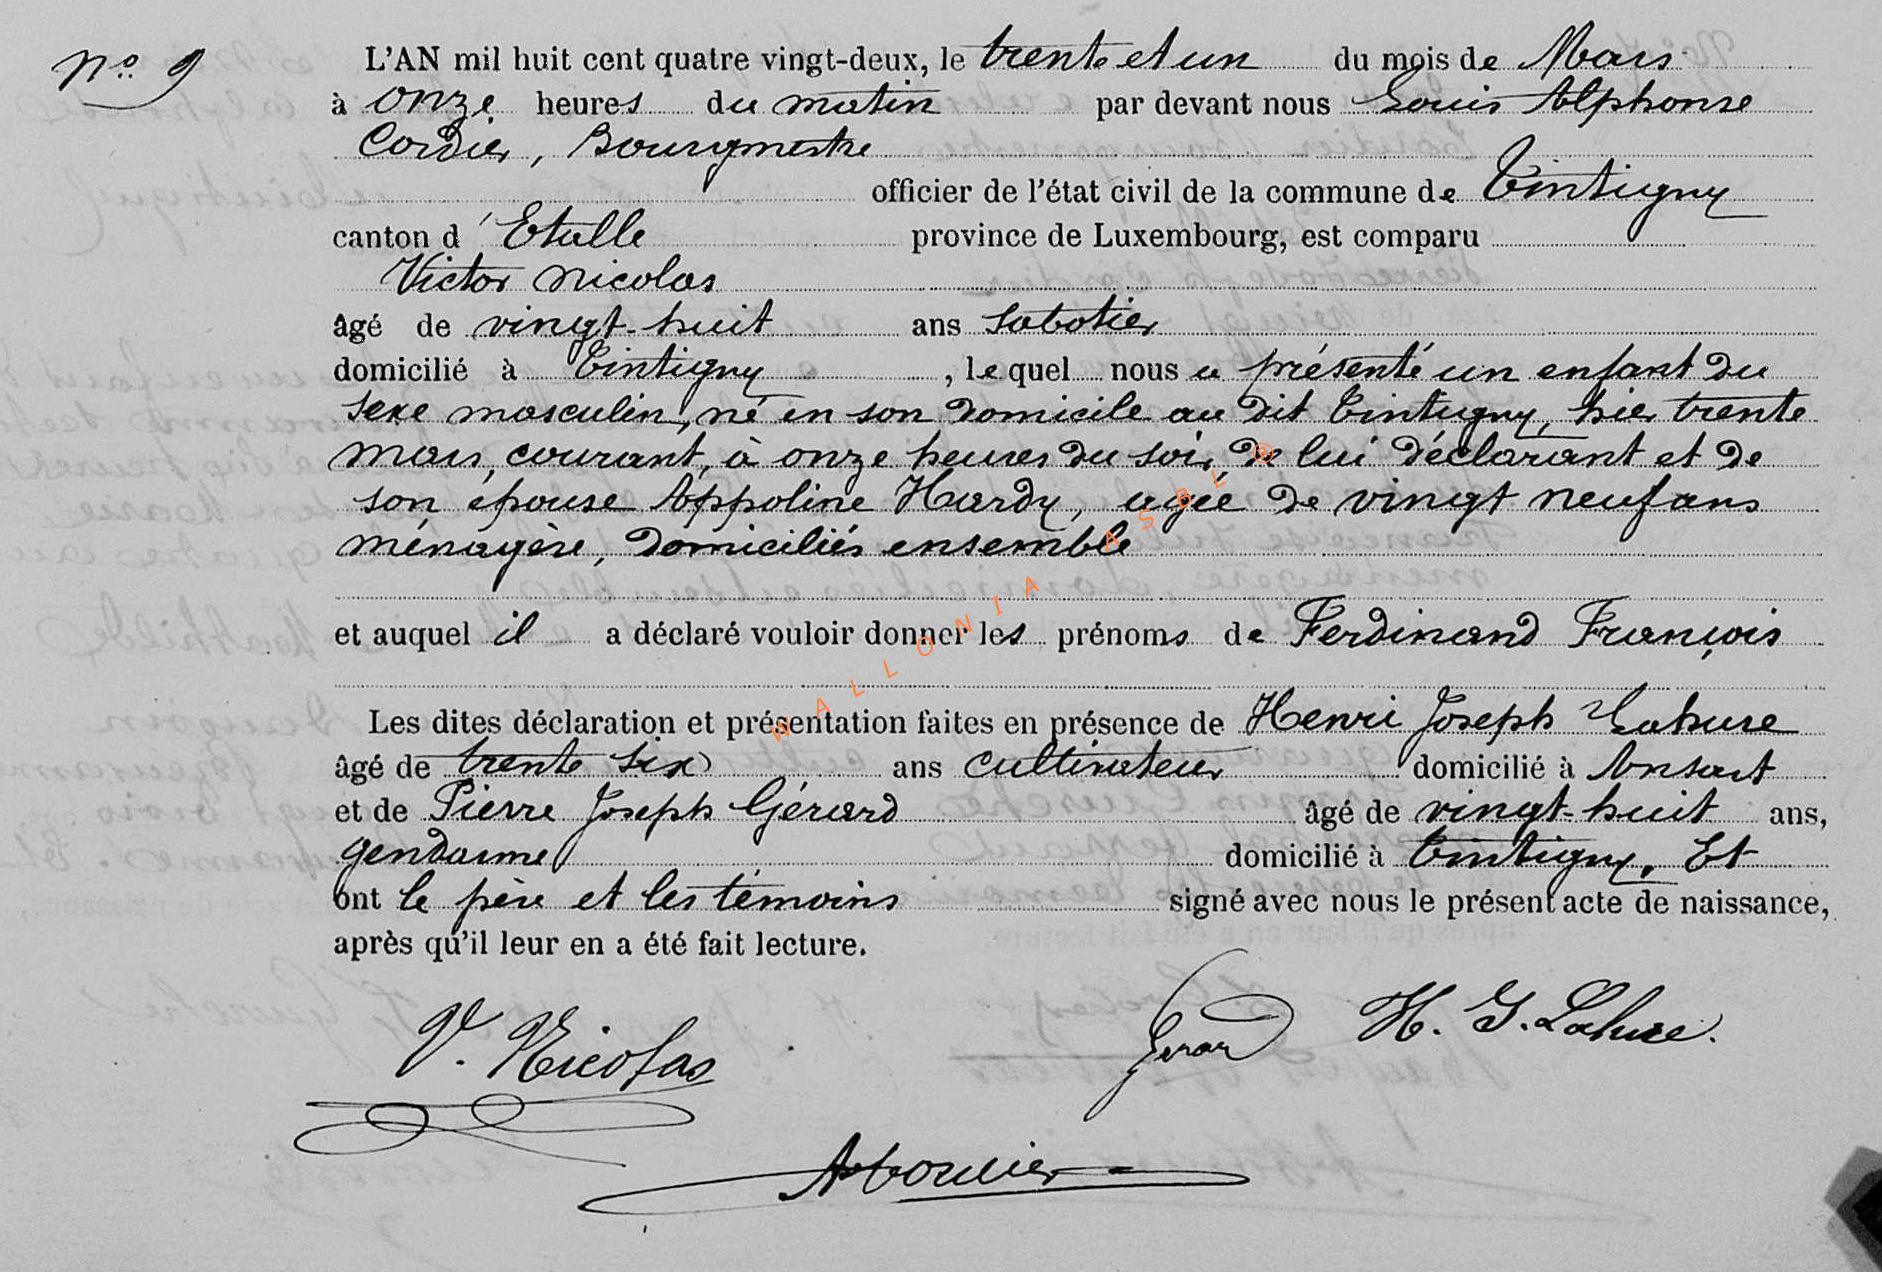 N° 9
L'AN mil huit cent quatre vingt-deux, le trente et un du mois de Mars
à onze heures du matin par devant nous Louis Alphonse
Cordier, Bourgmestre
officier de l'état civil de la commune de Tintigny
canton d'Etalle province de Luxembourg, est comparu
Victor Nicolas
âgé de vingt-huit ans sabotier
domicilié à Tintigny, lequel nous a présenté un enfant du
sexe masculin, né en son domicile au dit Tintigny, hier trente
mars, courant, à onze heures du soir, de lui déclarant et de
son épouse Appoline Hardy, agée de vingt neuf ans
ménagère, domiciliés ensemble
et auquel il a déclaré vouloir donner les prénoms de Ferdinand François
Les dites déclaration et présentation faites en présence de Henri Joseph Lahure
âgé de trente six ans cultivateur domicilié à Ansart
et de Pierre Joseph Gérard âgé de vingt-huit ans,
gendarme domicilié à Tintigny. Et
ont le père et les témoins signé avec nous le présent acte de naissance,
après qu'il leur en a été fait lecture.
V. Nicolas
Gerard
H. J. Lahure.
A Cordier
WALLONIA ASBL ©